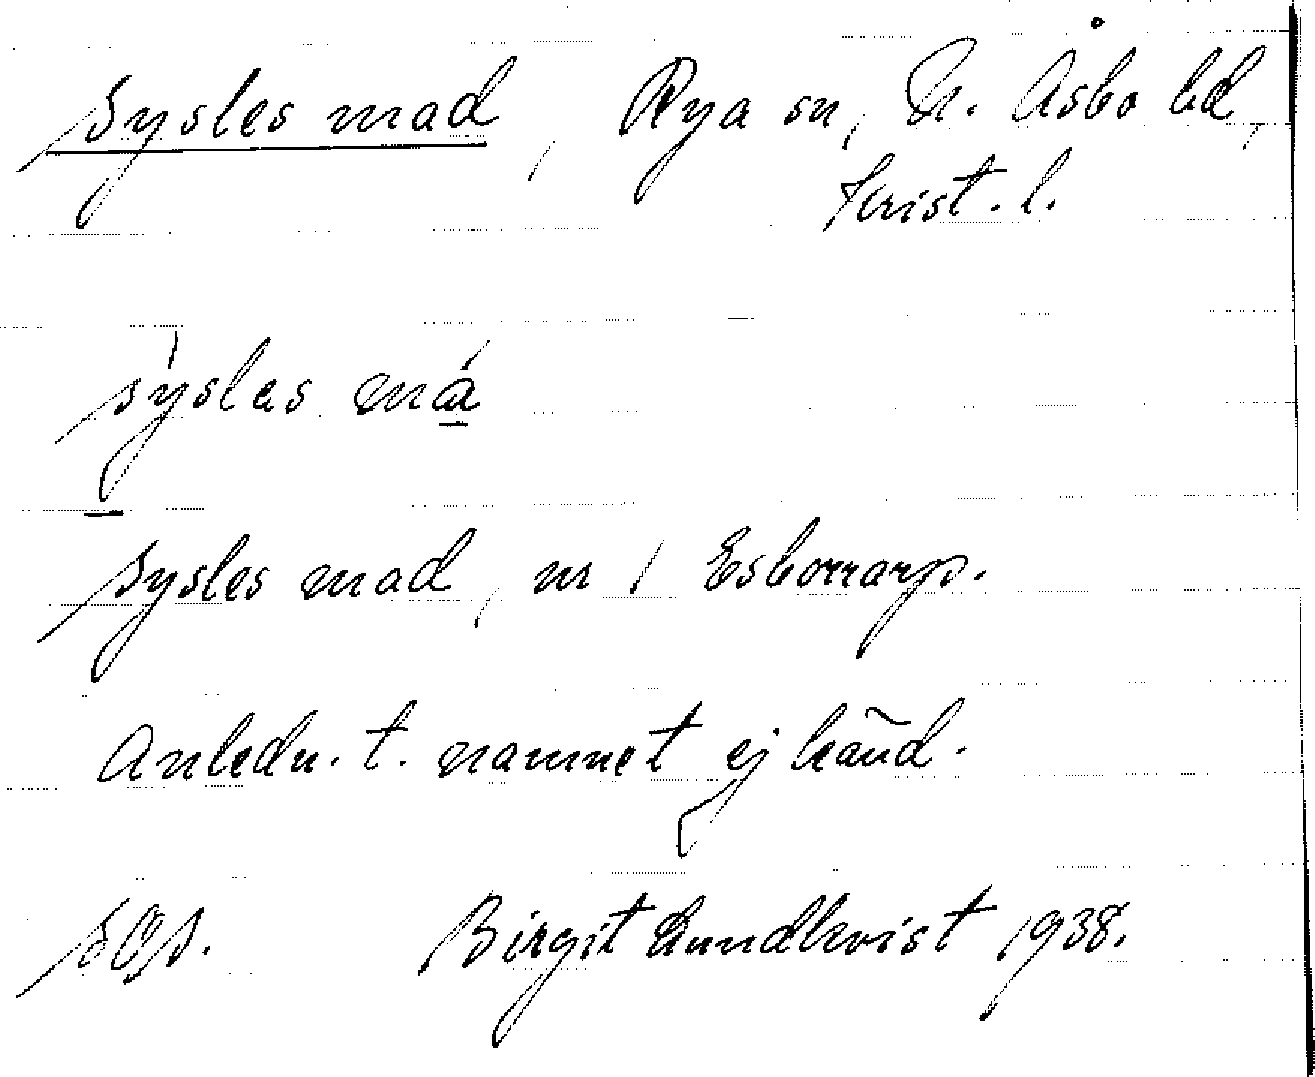 Sysles mad, Rya sn, N. Åsbo hd,
Krist. l.
sysles má
Sysles mad, m / Esborrarp.
Anledn. t. namnet ej känd.
Birgit Lundkvist 1938.